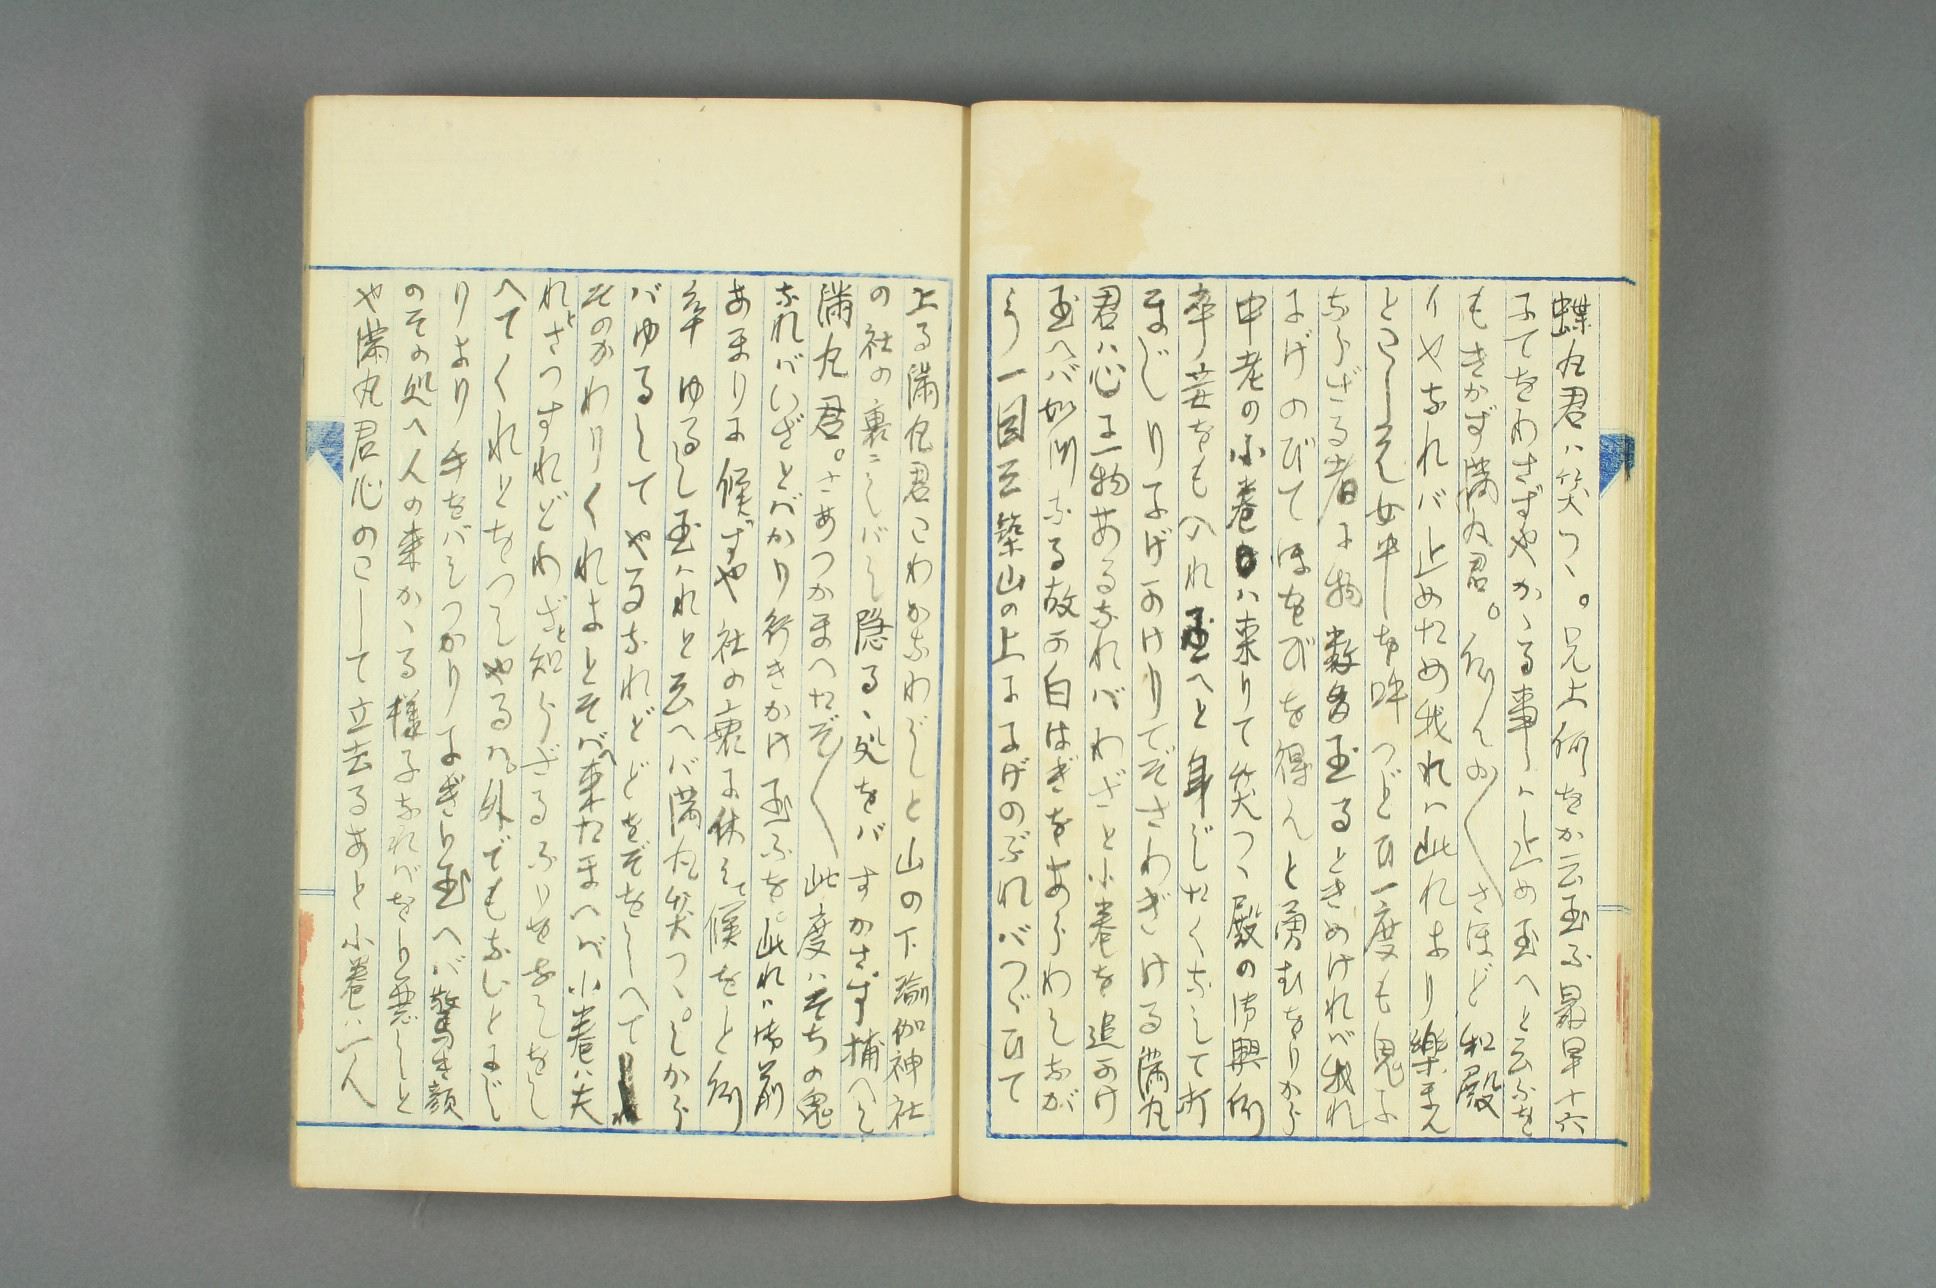 蝶丸君ハ笑つゝ。兄上何をか云玉ふ最早十六
にてをわさずやかゝる事ハ止め玉へと云ふを
もきかず満丸君。何んの〳〵さほど和殿
いやなれバ止めため我れハ此れより樂まん
とこし元女中を呼つどひ一度も鬼に
ならざる者に物数多玉るときめけれバ我れ
にげのびてほをびを得んと勇むをりから
中老の小巻ハ来りて笑つゝ殿の御興例
卒妾をもへれ玉へと身じたくなして打
まじりにげのけりでぞさわぎける満丸
君ハ心に一物あるなれバわざと小巻を追のけ
玉へバ如何なる故の白はぎをあらわしなが
ら一目に築山の上ににげのぶれバつゞひて
上る満丸君こわかなわじと山の下瑜伽神社
の社の裏にしバし隠るゝ処をバすかさず捕へし
満丸君。さあつかまへたぞ〳〵此度ハそちの鬼
なれバいざとバかり行きかけ玉ふを此れハ御前
あまりに候ずや社の裏に休みて候をと例
卒ゆるし玉ハれと云へバ満丸笑つゝ。しから
バゆるしてやるなれどどをぞをしへて
そのかわりくれよとそバへ来たまへバ小巻ハ夫
れとさつすれどわざと知らざるふりをなしをし
へてくれとをつしやるハ外でもないとにじ
りより手をバしつかりにぎり玉へバ驚き顔
のその処へ人の来かゝる様子なればをり悪しと
や満丸君心のこして立去るあと小巻ハ一人